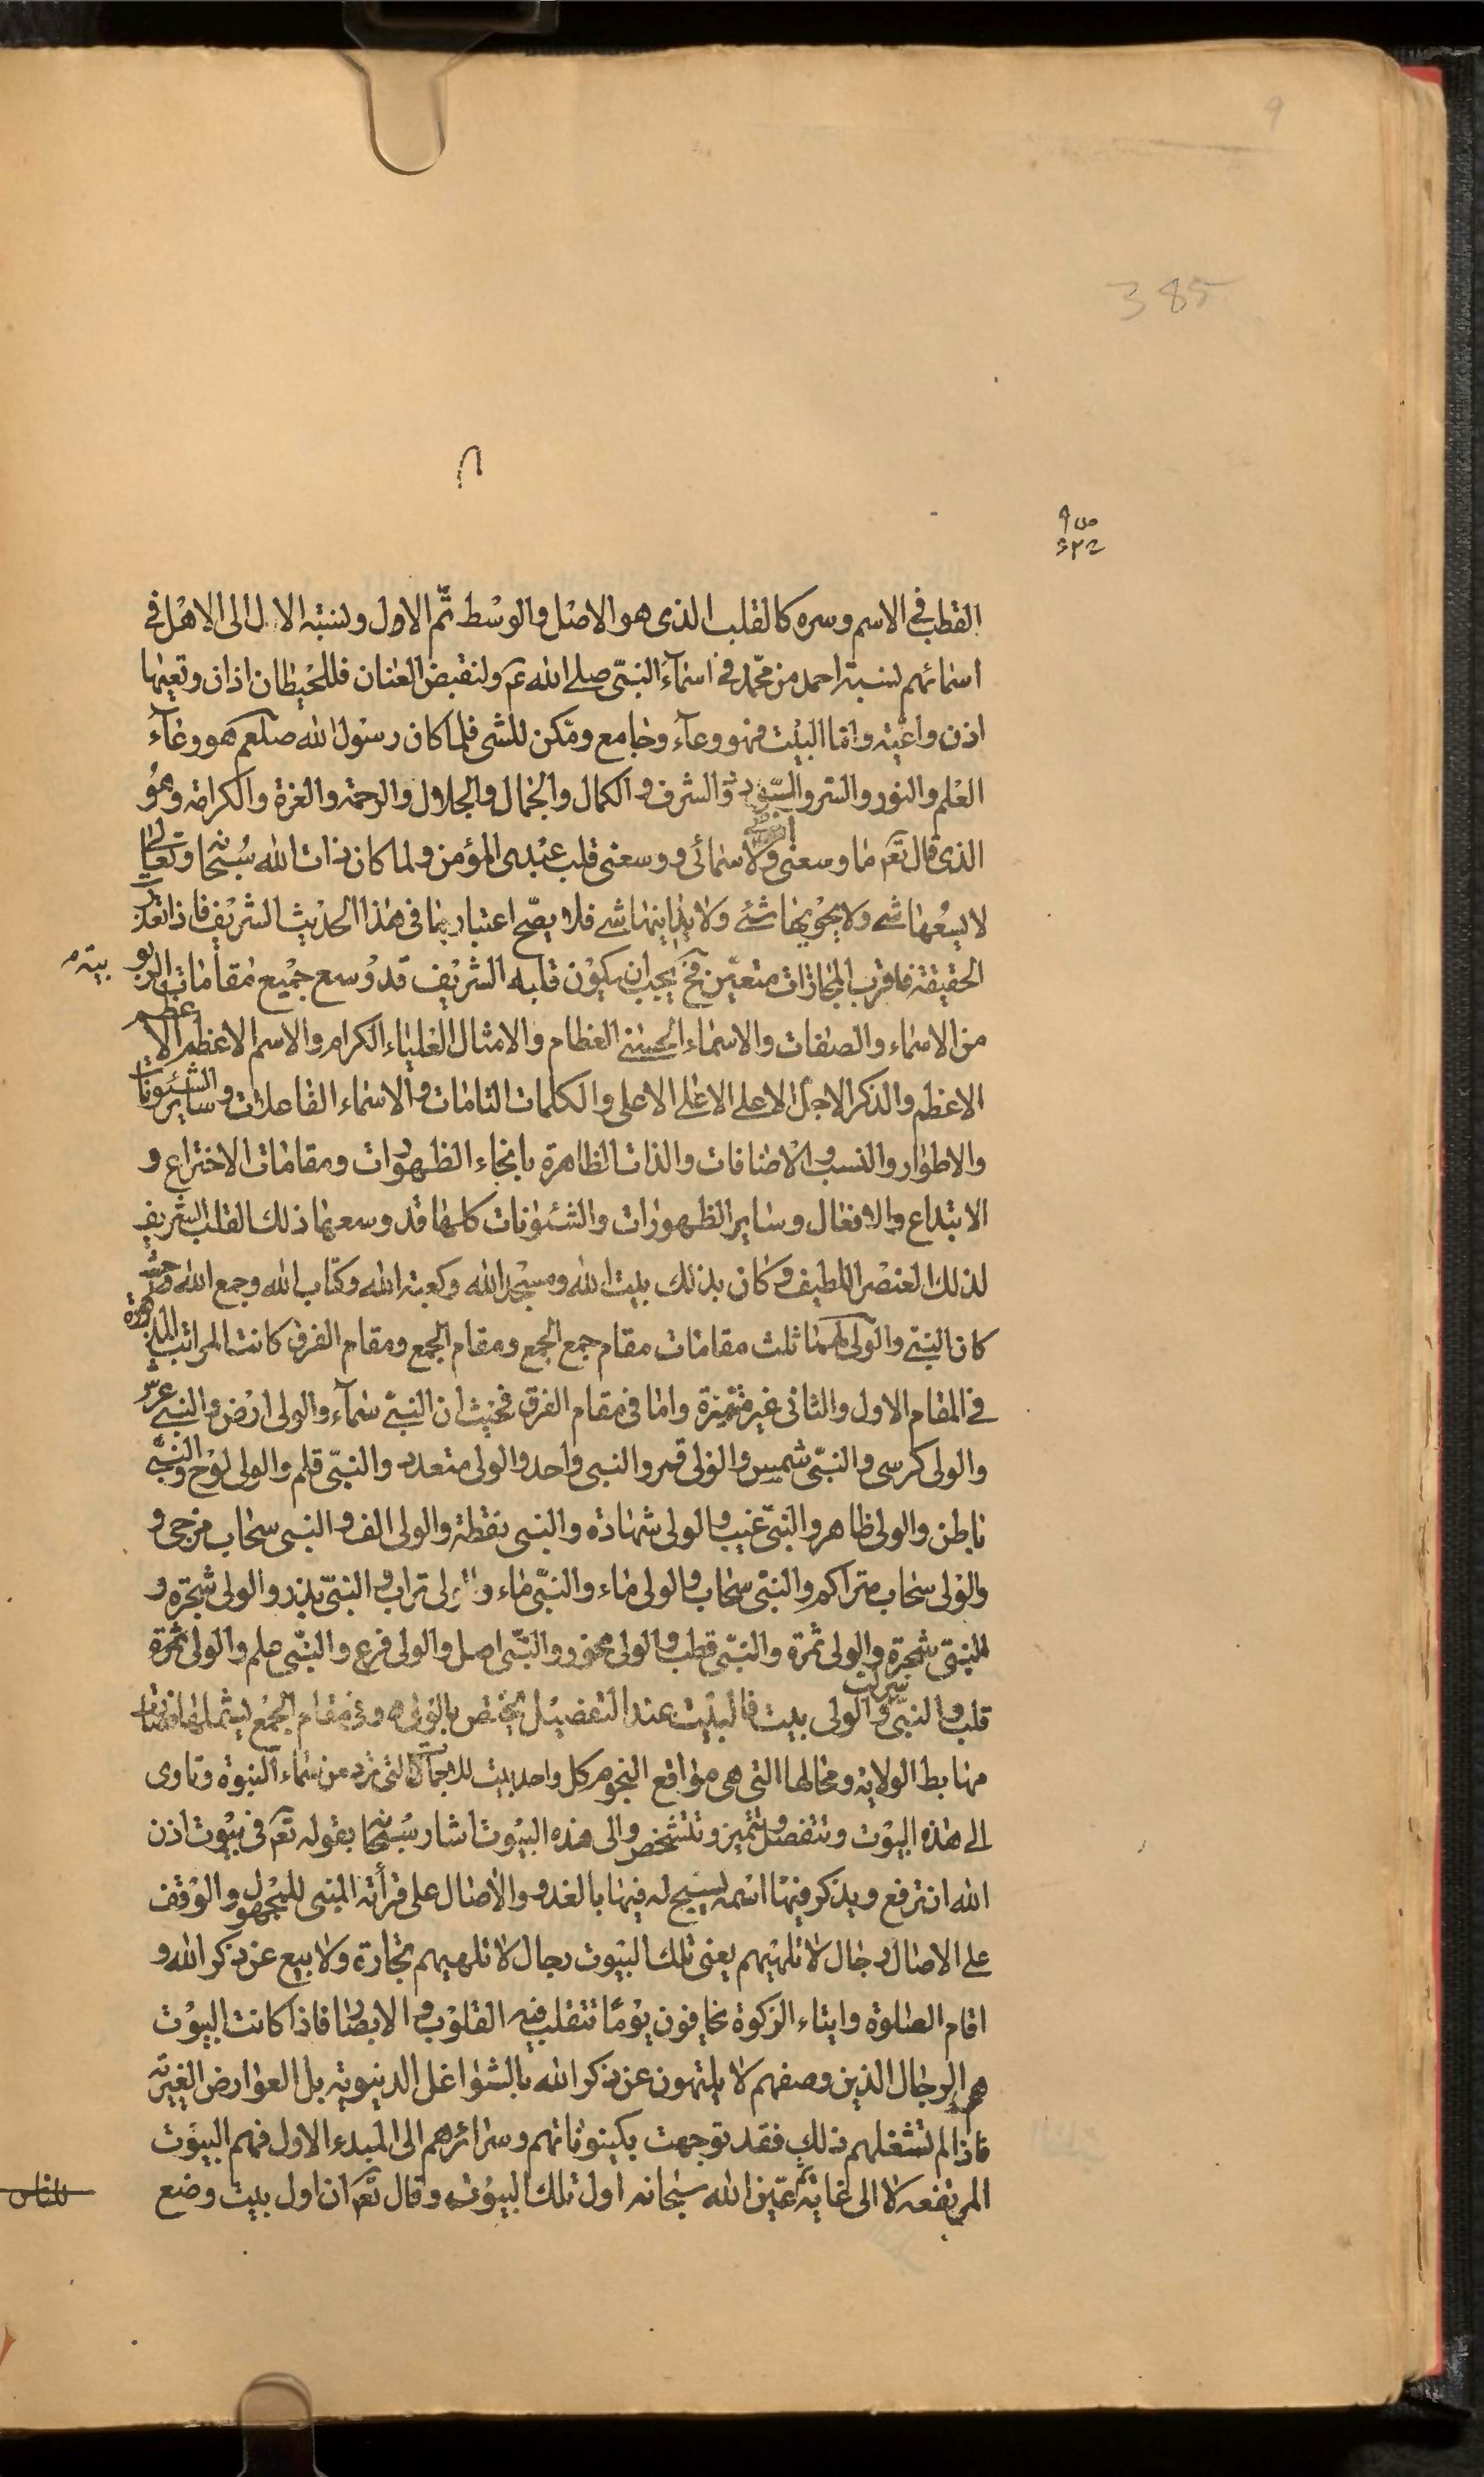 9
385
القطب فى الاسم وسره كالقلب الذى هو الاصل والوسط ثم الاول ونسبته الال الى الاهل فى
اسمائهم لنسبة احمد من محمد فى اسمآء النبى صلى الله عم ولنقبض العنان فللحيطان اذان وتعيها
اذن واعية واما البيت فهو وعآء وجامع ومكن للشى فلما كان رسول الله صلعم هو وعآء
العلم والنور والسر و والشرف والكمال والجمال والجلال والرحمة والعزة والكرامة وهو
الذى قال تعم ما وسعنى ارضى ولا سمائى ووسعنى قلب عبدى المؤمن ولما كان ذات الله سبحانه وتعالى
لا يسعها شى ولا يحويها شئ ولا يداينها شى فلا يصح اعتبارها فى هذا الحديث الشريف فاذا تعذرت
الحقيقة فاقرب المجازات متعين فح يجب ان يكون قلبه الشريف قد وسع جميع مقامات الربوبية
من الاسماء والصفات والاسماء الحسنى العظام والامثال العلياء الكرام والاسم الاعظم الاعظم
الاعظم والذكر الاجل الاعلى الاعلى الاعلى والكلمات التامات والاسماء الفاعلات وساير الشئونات
والاطوار والنسب والاضافات والذات الظاهرة بانحاء الظهورات ومقامات الاختراع و
الابتداع والافعال وساير الظهورات والشئونات كلها قد وسعها ذلك القلب الشريف
لذلك العنصر اللطيف وكان بذلك بيت الله ومسجد الله وكعبة الله وكتاب الله وجمع الله وحيث
كان النبى والولى لهما ثلث مقامات مقام جمع الجمع ومقام الجمع ومقام الفرق كانت المراتب المذكورة
فى المقام الاول والثانى غير متميزة واما فى مقام الفرق فحيث ان النبى سمآء والولى ارض والنبى عرش
والولى كرسى والنبى شمس والولى قمر والنبى واحد والولى متعدد والنبى قلم والولى لوح والنبى
باطن والولى ظاهر والنبى غيب والولى شهادة والنبى نقطة والولى الف والنبى سحاب مزجى و
والولى سحاب متراكم والنبى سحاب والولى ماء والنبى ماء والولى تراب والنبى بذر والولى شجرة و
النبى شجرة والولى ثمرة والنبى قطب والولى محور والنبى اصل والولى فرع والنبى والولى
قلب والنبى والولى بيت فالبيت عند التفصيل يختص بالولى وفى مقام الجمع يشملهما
مهابط الولاية ومحالها التى هى مواقع النجوم كل واحد بيت التى ترد من سماء النبوة وتاوى
الى هذه البيوت وتتفصل وتتميز وتتشخص والى هذه البيوت اشار سبحانه بقوله تعم فى بيوت اذن
الله ان ترفع ويذكر فيها اسمه يسبح له فيها بالغدو والاصال على قرأته المبنى للمجهول والوقف
على الاصال رجال لا تلهيهم يعنى تلك البيوت رجال لا تلهيهم تجارة ولا بيع عن ذكر الله و
اقام الصلوة وايتاء الزكوة يخافون يوما تتقلب فيه القلوب والابصار فاذا كانت البيوت
هم الرجال الذين وصفهم لا يلتهون عن ذكر الله بالشواغل الدنيوية بل العوارض الغيرية
فاذا لم تشغلهم ذلك فقد توجهت بكينوناتهم وسرائرهم الى المبدء الاول فهم البيوت
المرتفعه لا الى غاية ثم عين الله سبحانه اول تلك البيوت وقال تعم ان اول بيت وضع
للناس